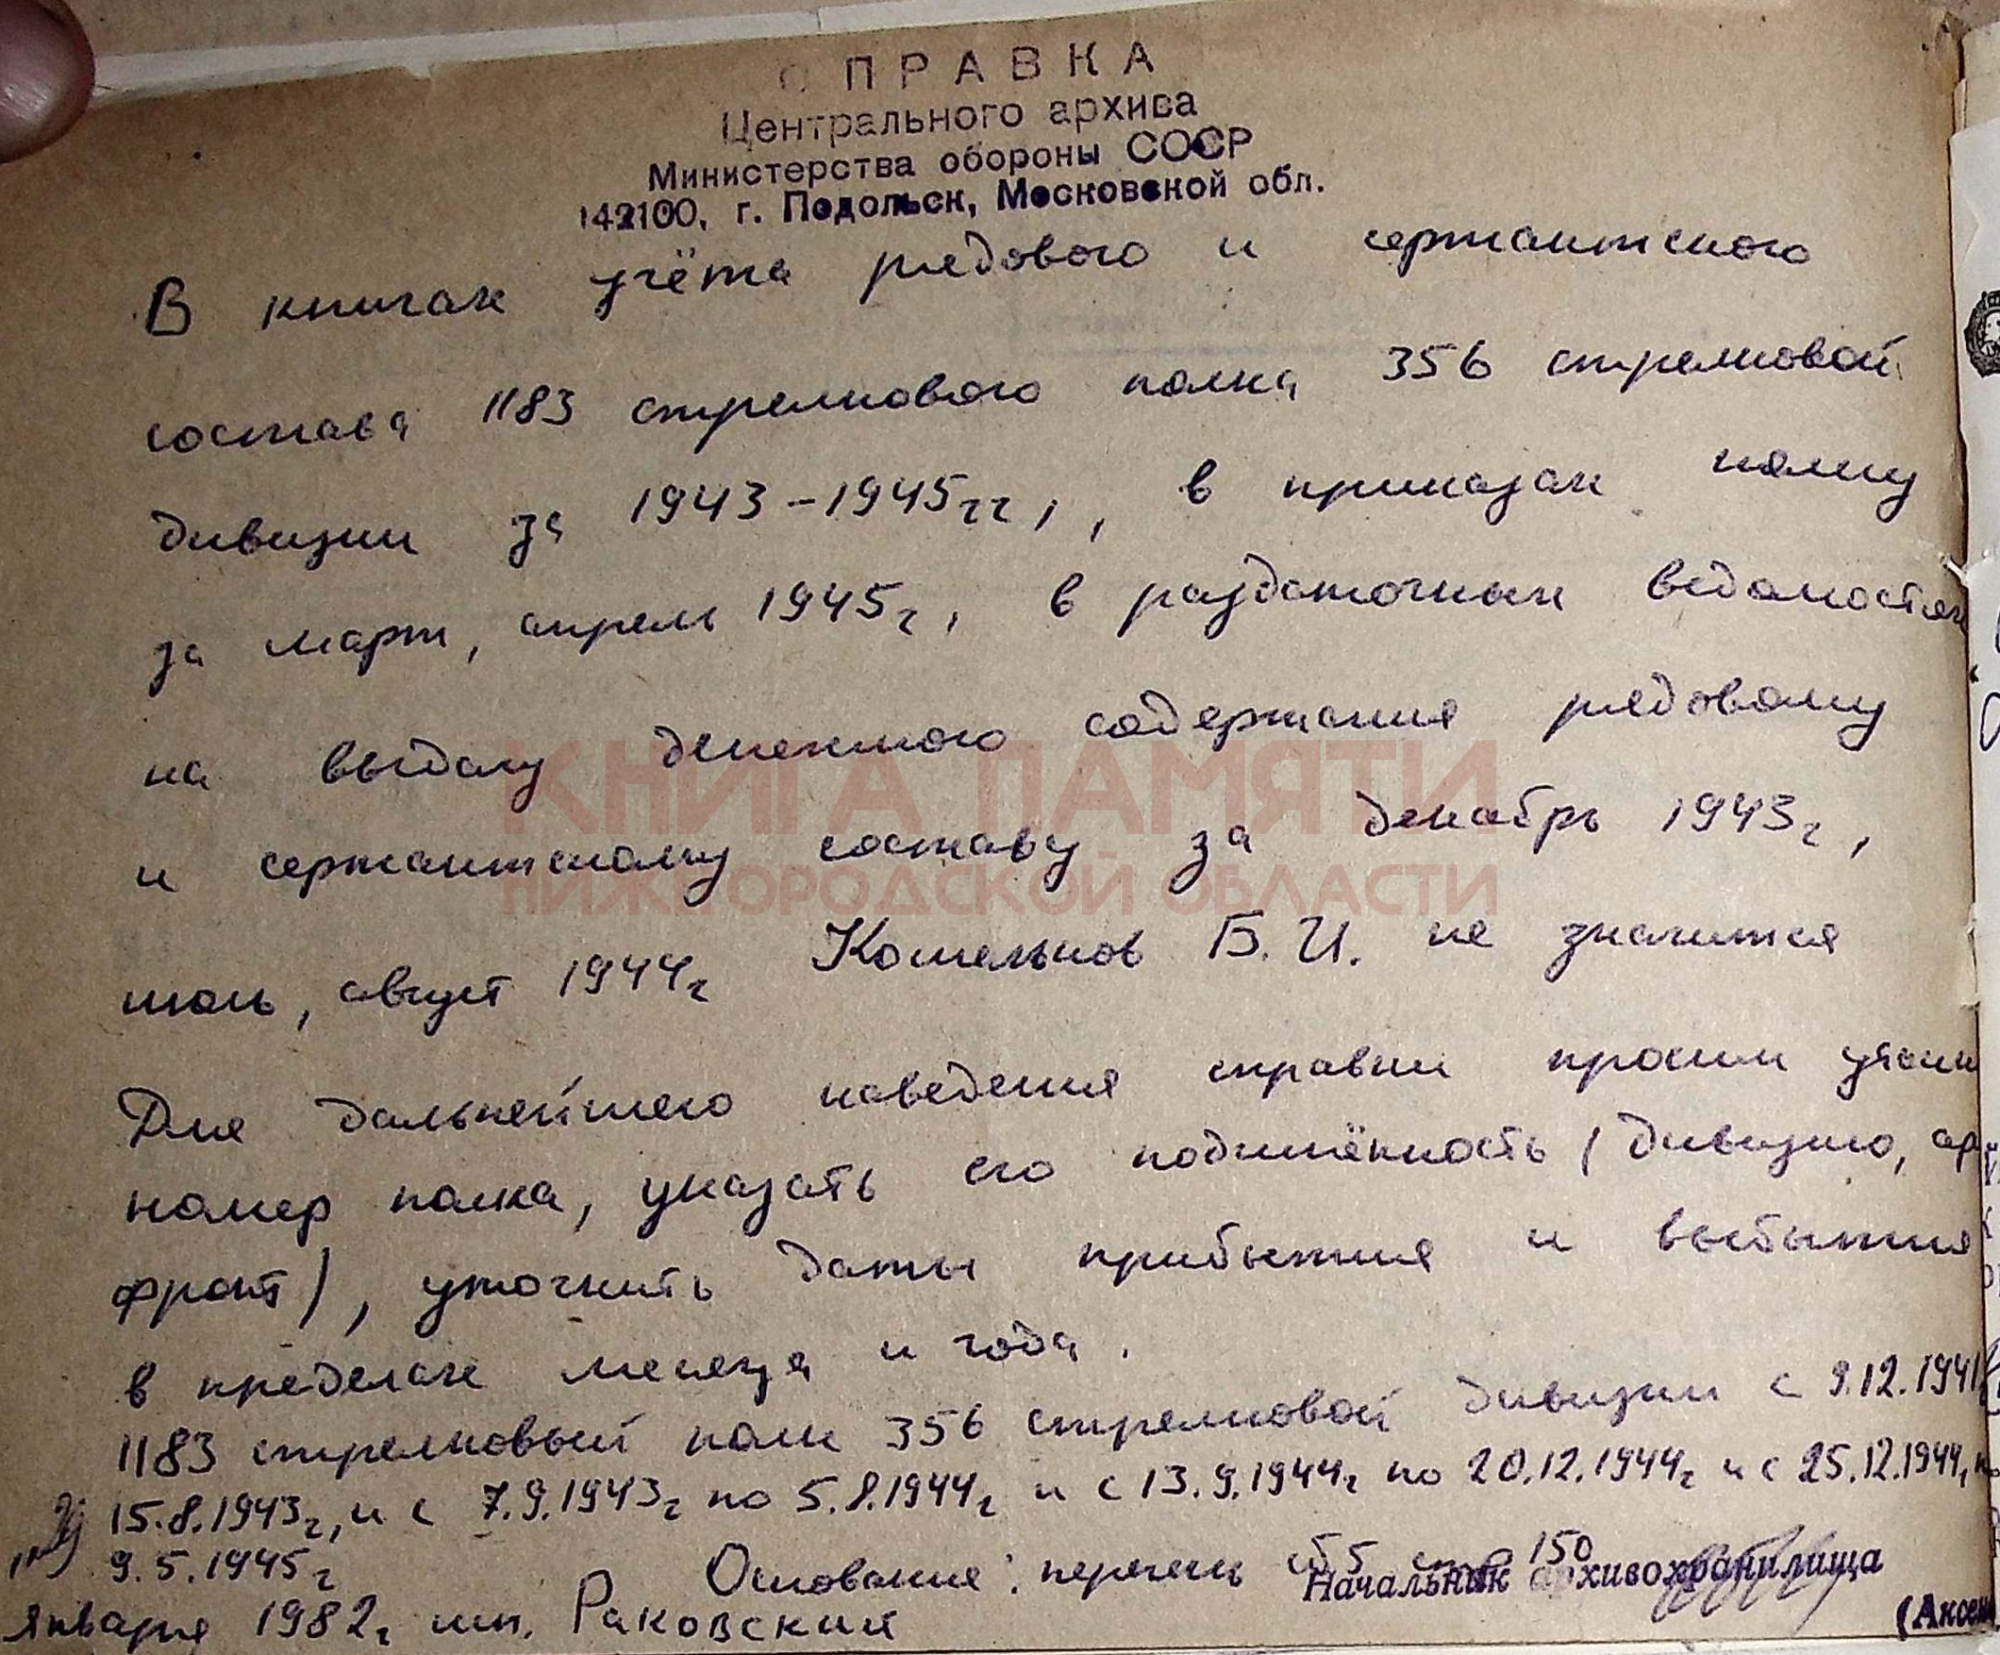 СПРАВКА
Центрального архива
Министерства обороны СССР
142100, г. Подольск, Московской обл.
В книгах учёта рядового и сержантского
состава 1183 стрелкового полка 356 стрелковой
дивизии за 1943-1945гг., в приказах полку
за март, апрель 1945г, в раздаточных ведомостях
на выдачу денежного содержания рядовому
и сержантскому составу за декабрь 1943г,
июль, август 1944г Котельнов Б.И. не значится
КНИГА ПАМЯТИ
НИЖЕГОРОДСКОЙ ОБЛАСТИ
Для дальнейшего наведения справки просим
номер полка, указать его подчинённость (дивизию, ар
фронт), уточнить даты прибытия и выбытия
в пределах месяца и года.
1183 стрелковый полк 356 стрелковой дивизии с 9.12.1941
15.8.1943г, и с 7.9.1943г по 5.8.1944г и с 13.9.1944г по 20.12.1944г и с 25.12.1944г по
9.5.1945г
Основание: перечень 150
Начальник архивохранилища
января 1982г исп. Раковский
(Аксен